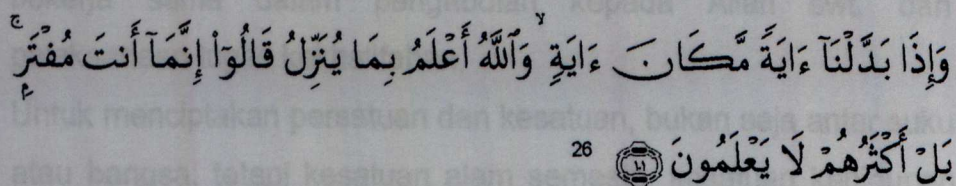 وَإِذَا بَدَّلْنَآ ءَايَةً مَّكَانَ ءَايَةٍ ۙ وَٱللَّهُ أَعْلَمُ بِمَا يُنَزِّلُ قَالُوٓا۟ إِنَّمَآ أَنتَ مُفْتَرٍۭ ۚ
بَلْ أَكْثَرُهُمْ لَا يَعْلَمُونَ ﴿١٠١﴾ 26